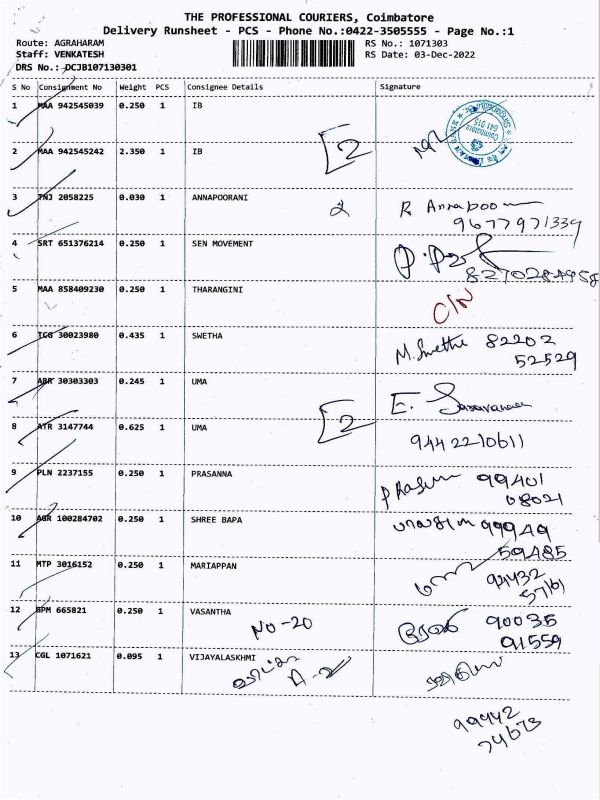 THE PROFESSIONAL COURIERS, Coimbatore
Delivery Runsheet - PCS - Phone No.:0422-3505555 - Page No.:1
Route: AGRAHARAM
RS No.: 1071303
Staff: VENKATESH
RS Date: 03-Dec-2022
DRS No.: DCJB107130301
S No Consignment No Weight PCS Consignee Details Signature
1 MAA 942545039 0.250 1 IB
2 MAA 942545242 2.350 1 IB
2
3 TNJ 2058225 0.030 1 ANNAPOORANI R Annapoorn
9677971339
4 SRT 651376214 0.250 1 SEN MOVEMENT
8270284958
5 MAA 858409230 0.250 1 THARANGINI C/N
6 TCG 30023980 0.435 1 SWETHA M. Swetha 82202
52529
7 ABR 30303303 0.245 1 UMA E. Saravanan
2
8 ATR 3147744 0.625 1 UMA 9442210611
9 PLN 2237155 0.250 1 PRASANNA 99401
08021
10 AGR 100284702 0.250 1 SHREE BAPA 99949
59485
11 MTP 3016152 0.250 1 MARIAPPAN 94432
57161
12 BPM 665821 0.250 1 VASANTHA NO-20 90035
91559
13 CGL 1071621 0.095 1 VIJAYALASKHMI
99442
74673